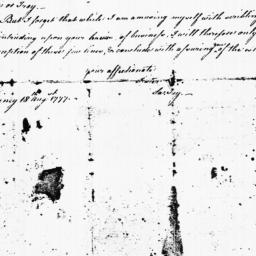 or Troy.
But I forget that while I am amusing myself with scribling
intruding upon your hours of business. I will therefore only
of these few lines, & conclude with assuring of the
your affectionate
Sister
18 Augt 1777.